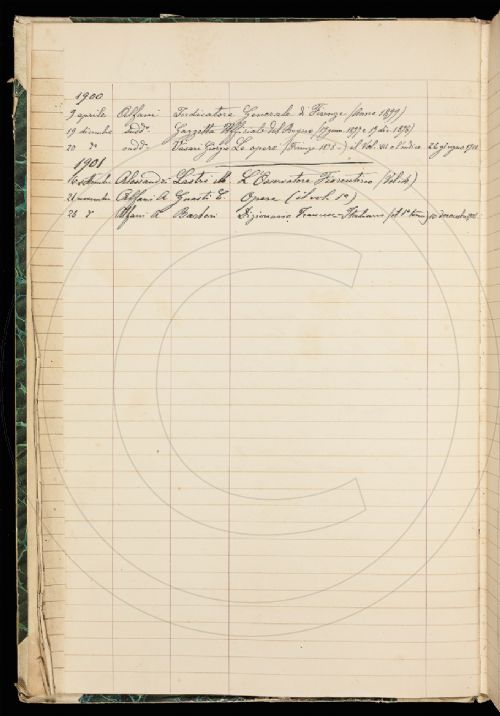 1900
9 aprile Alfani Indicatore Generale di Firenze (Anno 1899)
19 dicembre sudd.º Gazzetta Ufficiale del Regno
20 dº sudd.º Vasari Giorgio Le opere (Firenze 1878-) il Vol. VIII o l'indice 26 giugno 1901
1901
16 settembre Alessandri Lastri M. L'Osservatore Fiorentino (Vol. 4)
21 novembre Alfani A. Guasti C. Opere (il vol. 1º)
28 dº Alfani A. Barberi Dizionario Francese-Italiano